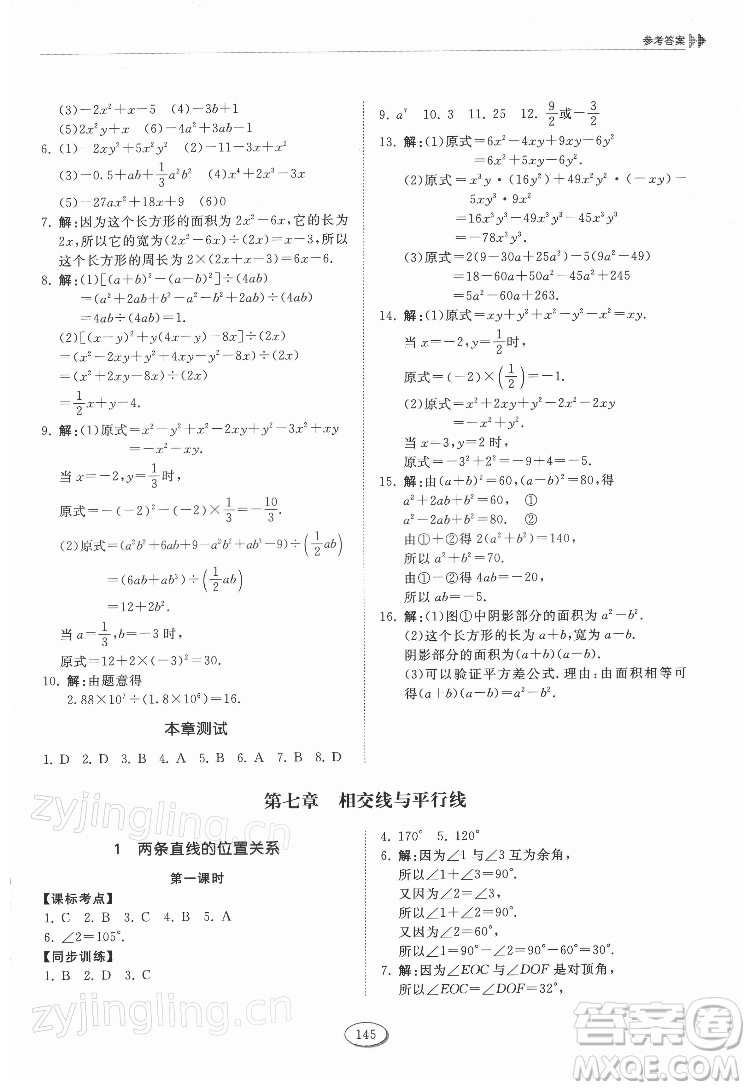 参考答案
(3)-2x²+x-5 (4)-3b+1
(5)2x²y+x (6)-4a²+2b²-1
6. (1)-2xy²+5x²y² (2)-2x²-6x
(3)-0.5+ab+1/3a²b² (4)x⁴+2x³-x
(5)-27ax²+18x+9 (6)0
7. 解:因为这个长方形的面积为2x²-6x,长为
2x,所以它的宽为(2x²-6x)÷(2x)=x-3,所以
这个长方形的周长为2×(2x+x-3)=6x-6.
8. 解:(1)[(a+b)²-(a-b)²]÷(4ab)
=(a²+2ab+b²-a²-b²+2ab)÷(4ab)
=4ab÷(4ab)=1.
(2)[(x-y)²+y(4x-y)-8x]÷(2x)
=(x²-2xy+y²+4xy-y²-8x)÷(2x)
=(x²+2xy-8x)÷(2x)
=1/2x+y-4.
9. 解:(1)原式=x²-y²+x²-2xy+y²-x²+xy
=x²-xy.
当x=-2,y=1/3时,
原式=-(-2)²-(-2)×1/3=-10/3.
(2)原式=(a²b²+6ab+9-a²b²+ab³-9)÷(1/2ab)
=(6ab+ab³)÷(1/2ab)
=12+2b².
当a=1/3,b=-3时,
原式=12+2×(-3)²=30.
10. 解:由题意得
2.88×10⁷÷(1.8×10⁶)=16.
本章测试
1. D 2. D 3. B 4. A 5. D 6. D 7. B 8. D
9. a⁷ 10. 3 11. 25 12. 9/2或-3/2
13. 解:(1)原式=6x²-4xy+9xy-6y²
=6x²+5xy-6y².
(2)原式=x³y·(16y²)+49x²y²·(-xy)-
5xy³·9x²
=16x³y³-49x³y³-45x³y³
=-78x³y³.
(3)原式=2(9-30a+25a²)-5(2a²-49)
=18-60a+50a²-10a²+245
=40a²-60a+263.
14. 解:(1)原式=xy+y²+x²-y²-x²=xy.
当x=-2,y=1/2时,
原式=(-2)×(1/2)=-1.
(2)原式=x²+2xy+y²-2x²-2xy
=-x²+y².
当x=3,y=2时,
原式=-3²+2²=-9+4=-5.
15. 解:由(a+b)²=60,(a-b)²=80,得
a²+b²+2ab=60, ①
a²+b²-2ab=80. ②
由①+②得2(a²+b²)=140,
所以a²+b²=70.
由①-②得4ab=-20,
所以ab=-5.
16. 解:(1)图①中阴影部分的面积为a²-b².
(2)这个长方形的长为a+b,宽为a-b.
阴影部分的面积为(a+b)(a-b).
(3)可以验证平方差公式.理由:由面积可得
(a+b)(a-b)=a²-b².
第七章 相交线与平行线
1 两条直线的位置关系
第一课时
【课标考点】
1. C 2. B 3. C 4. B 5. A
6. ∠2=105°.
【同步训练】
1. B 2. D 3. C
4. 170° 5. 120°
6. 解:因为∠1与∠3互为余角,
所以∠1+∠3=90°.
又因为∠2=∠3,
所以∠1+∠2=90°.
又因为∠1=∠2,
所以∠1=45°.
7. 解:因为∠EOC与∠DOF是对顶角,
所以∠EOC=∠DOF=90°,
145
zyjingling.com
zyjingling.cn
答案卷
MXQE.COM